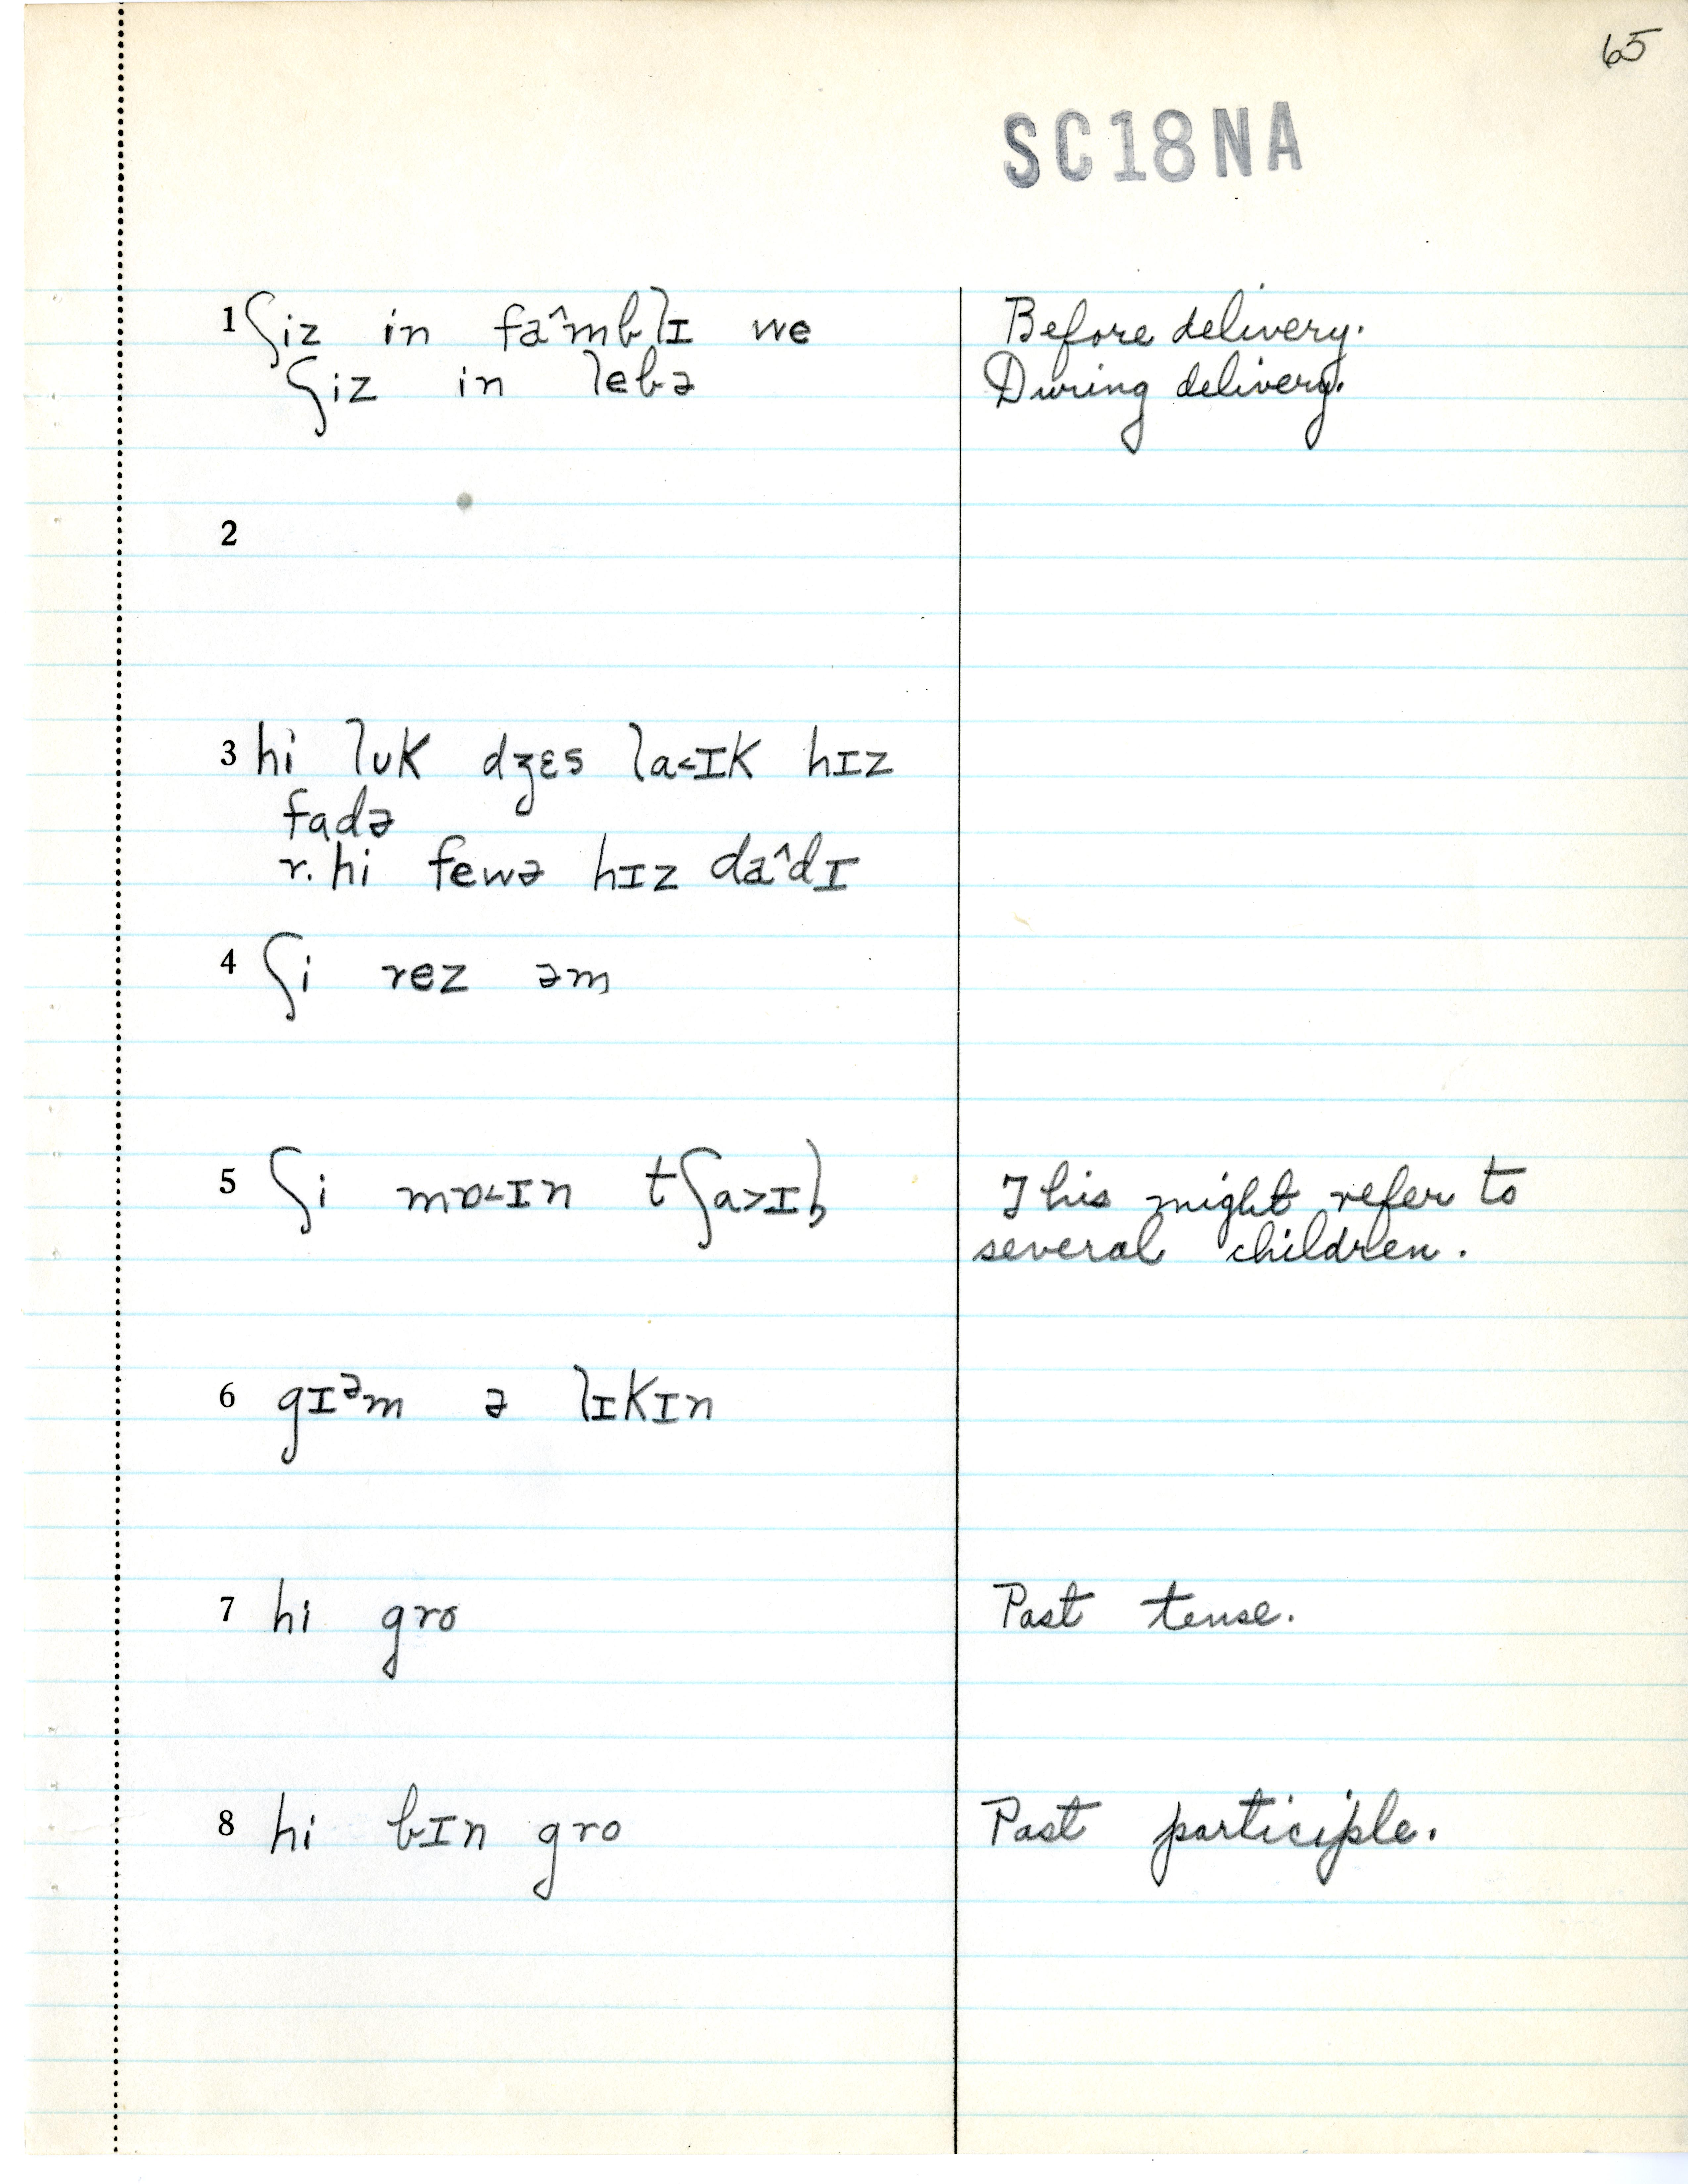 65
SC18NA
1 ʃiz in fa^mblɪ we Before delivery.
ʃiz in lebə During delivery.
2
3 hi lʊk dʒɛs la˂ɪk hɪz
fadə
r. hi fewə hɪz da^dɪ
4 ʃi rez əm
5 ʃi mɒ˂ɪn tʃa˃ɪl̩ This might refer to
several children.
6 gɪᵊm ə lɪkɪn
7 hi gro Past tense.
8 hi bɪn gro Past participle.